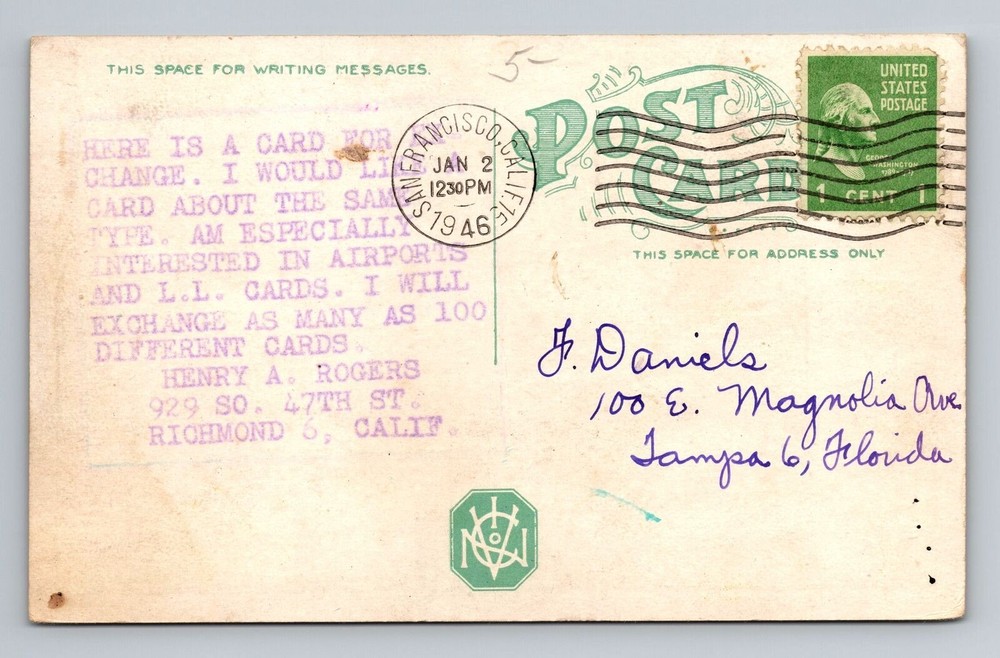 THIS SPACE FOR WRITING MESSAGES.
5-
POST CARD
UNITED
STATES
POSTAGE
GEORGE
WASHINGTON
1 CENT 1
SAN FRANCISCO, CALIF.
JAN 2
1230PM
1946
THIS SPACE FOR ADDRESS ONLY
HERE IS A CARD FOR
CHANGE. I WOULD LIKE A
CARD ABOUT THE SAME
TYPE. AM ESPECIALLY
INTERESTED IN AIRPORTS
AND L.L. CARDS. I WILL
EXCHANGE AS MANY AS 100
DIFFERENT CARDS.
HENRY A. ROGERS
929 SO. 47TH ST.
RICHMOND 6, CALIF.
F. Daniels
100 E. Magnolia Ave.
Tampa 6, Florida